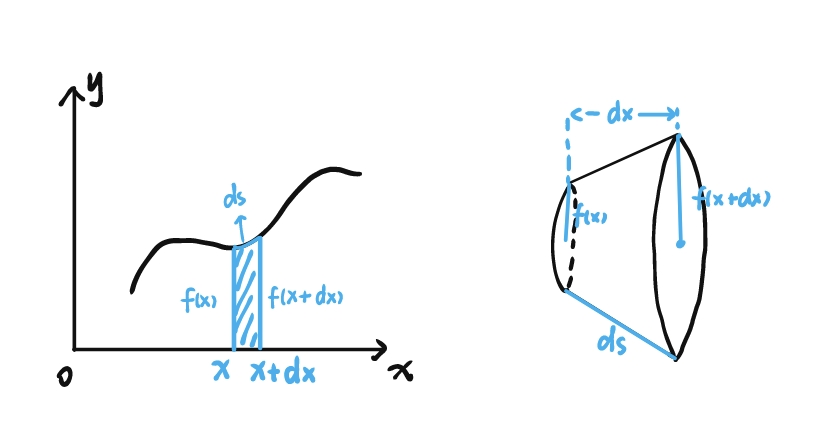 y
ds
f(x)
f(x+dx)
0
x
x+dx
x
dx
f(x)
f(x+dx)
ds